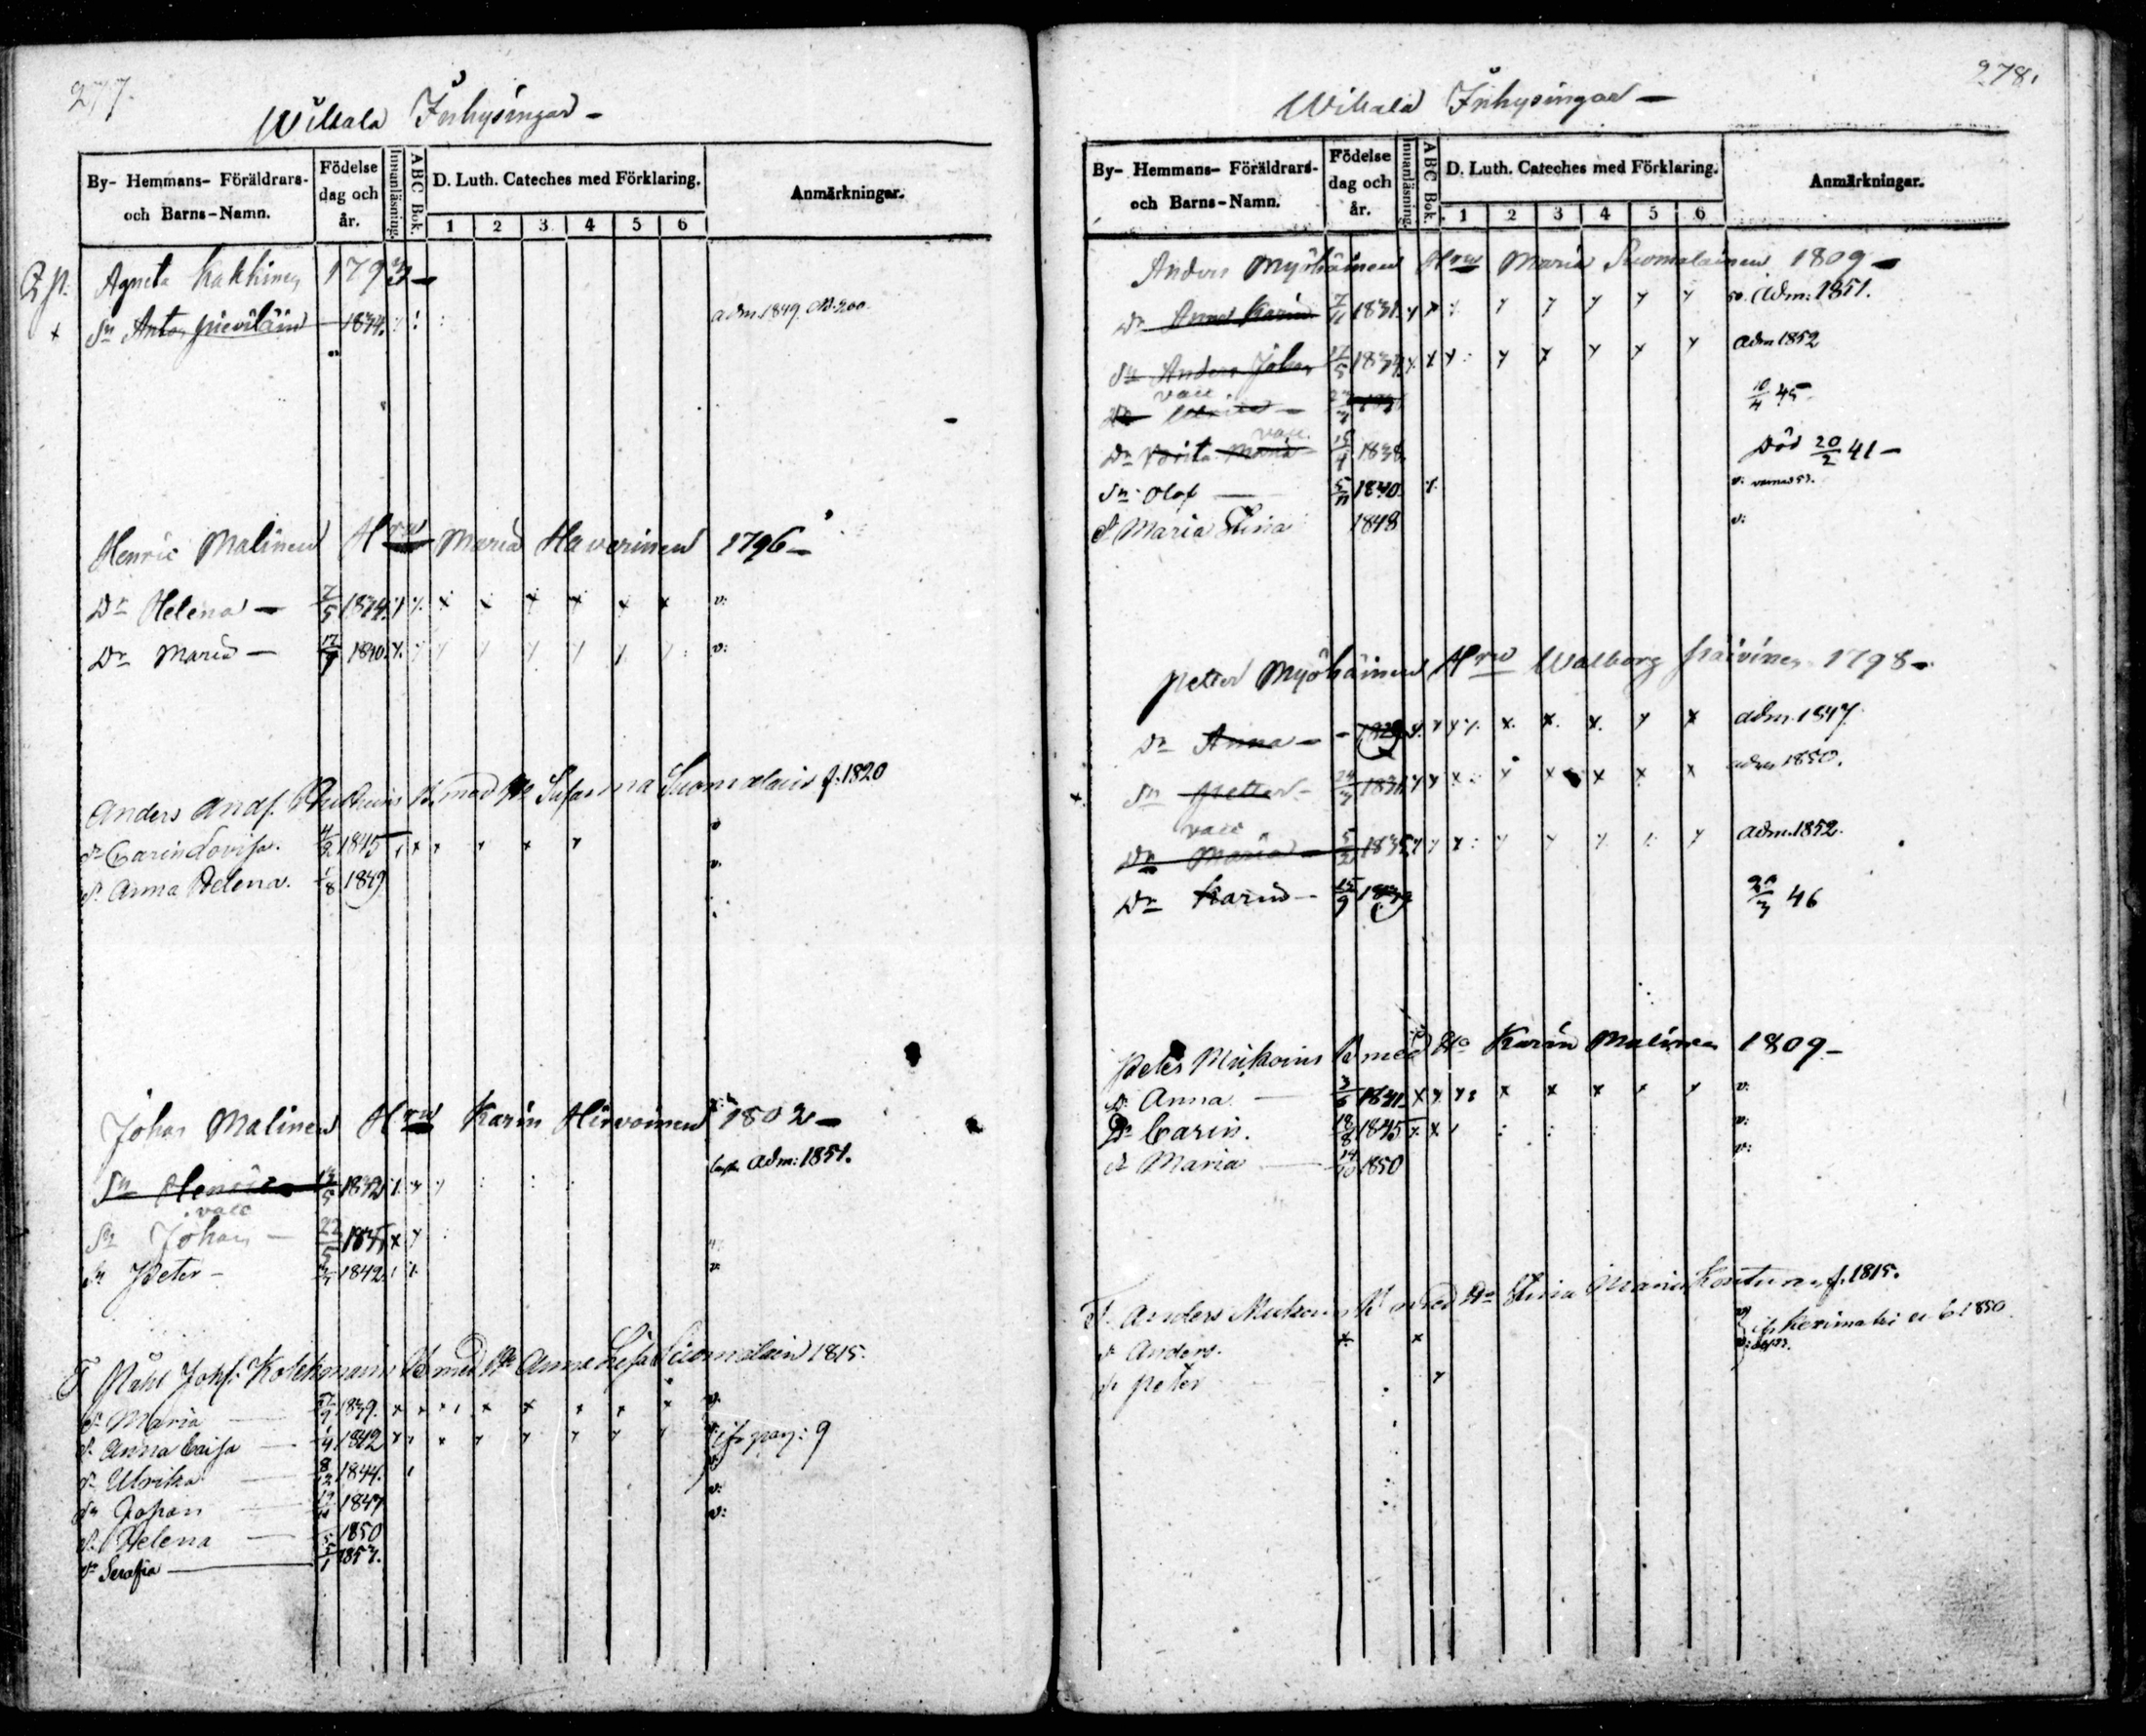 277.
Wikala Inhysingar -
By- Hemmans- Föräldrars- och Barns-Namn.
Födelse dag och år.
Innanläsning.
ABC Bok.
D. Luth. Cateches med Förklaring.
1 2 3 4 5 6
Anmärkningar.
Agneta Kakkinen 1793 -
Sn Anton 1834. adm. 1849.
Henric Malinen Hru Maria Haverinen 1796 -
Dr Helena - 7/5 1834 v:
Dr Maria - 1840 v:
Anders Andf. med Ho Susanna Suomalain f. 1820
dr Carin Lovisa. 4/2 1845 v
dr Anna Helena. 1/8 1849 v.
Johan Malinen Hru Karin Hirvoinen 1802 -
Sn Henric 1832 adm: 1851.
vacc
Sn Johan - 22/5
Sn Peter - 1842 v
T Påhl Johs: Kolehmain med Ho Anna Lisa Suomalain 1815.
dr Maria 1839. v.
dr Anna Caisa 1/4 1842
dr Ulrika 8/12 1844.
sn Johan 1847 v:
dr Helena 1850 v:
dr Serafia 5/1 1853.
278.
Wikala Inhysingar -
By- Hemmans- Föräldrars- och Barns-Namn.
Födelse dag och år.
Innanläsning.
ABC Bok.
D. Luth. Cateches med Förklaring.
1 2 3 4 5 6
Anmärkningar.
Anders Myöhäinen Hru Maria Suomalainen 1809 -
Dr Anna Karin 7/11 1831 adm: 1851.
Sn Anders Johan 17/5 1834 adm 1852
vacc
Dr 10/4 45 -
vacc.
Dr Maria 1838 Död 20/2 41 -
Sn Olof 5/11 1840 v:
d Maria Stina 1848 v:
Petter Myöhäinen Hru Walborg Päivinen 1798 -
Dr Anna - 1829 adm. 1847
Sn Petter - 24/3 1831 adm 1850.
vacc
Dr Maria - 5/2 1835 adm. 1852.
Dr Karin - 15/9 20/3 46
Peter Mukoin med Ho Karin Malinen 1809 -
D. Anna 3/6 1841 v:
Dr Carin. 18/8 1845 v:
dr Maria 14/10 1850 v:
T. Anders Mukoin med Ho Stina Maria f. 1815.
sn Anders. Kerimäki 1850
sn Peter